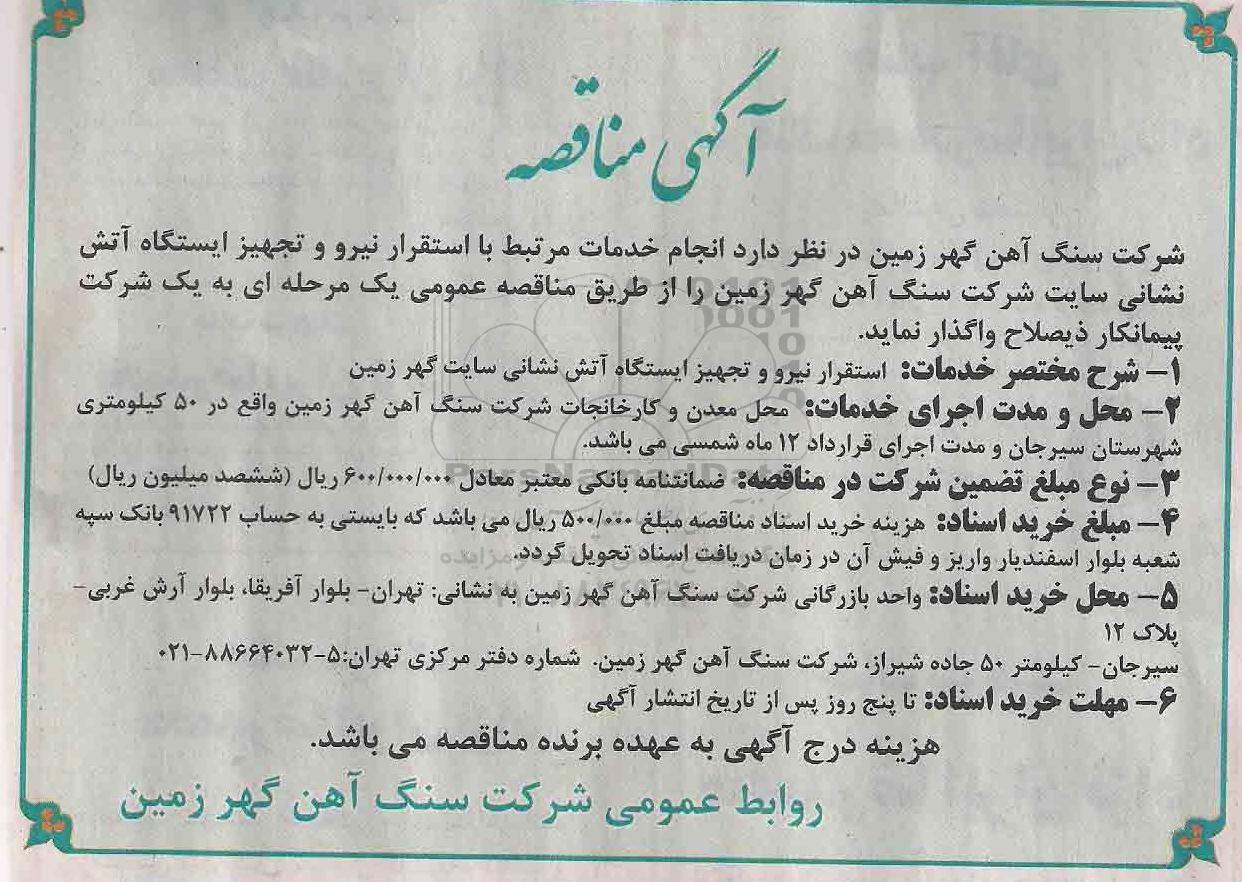 آگهی مناقصه
شرکت سنگ آهن گهر زمین در نظر دارد انجام خدمات مرتبط با استقرار نیرو و تجهیز ایستگاه آتش
نشانی سایت شرکت سنگ آهن گهر زمین را از طریق مناقصه عمومی یک مرحله ای به یک شرکت
پیمانکار ذیصلاح واگذار نماید.
۱– شرح مختصر خدمات: استقرار نیرو و تجهیز ایستگاه آتش نشانی سایت گهر زمین
۲– محل و مدت اجرای خدمات: محل معدن و کارخانجات شرکت سنگ آهن گهر زمین واقع در ۵۰ کیلومتری
شهرستان سیرجان و مدت اجرای قرارداد ۱۲ ماه شمسی می باشد.
۳– نوع مبلغ تضمین شرکت در مناقصه: ضمانتنامه بانکی معتبر معادل ۶۰۰/۰۰۰/۰۰۰ ریال (ششصد میلیون ریال)
۴– مبلغ خرید اسناد: هزینه خرید اسناد مناقصه مبلغ ۵۰۰/۰۰۰ ریال می باشد که بایستی به حساب ۹۱۷۲۲ بانک سپه
شعبه بلوار اسفندیار واریز و فیش آن در زمان دریافت اسناد تحویل گردد.
۵– محل خرید اسناد: واحد بازرگانی شرکت سنگ آهن گهر زمین به نشانی: تهران– بلوار آفریقا، بلوار آرش غربی–
پلاک ۱۲
سیرجان– کیلومتر ۵۰ جاده شیراز، شرکت سنگ آهن گهر زمین. شماره دفتر مرکزی تهران:۵–۸۸۶۶۴۰۳۲–۰۲۱
۶– مهلت خرید اسناد: تا پنج روز پس از تاریخ انتشار آگهی
هزینه درج آگهی به عهده برنده مناقصه می باشد.
روابط عمومی شرکت سنگ آهن گهر زمین
ParsNamadData